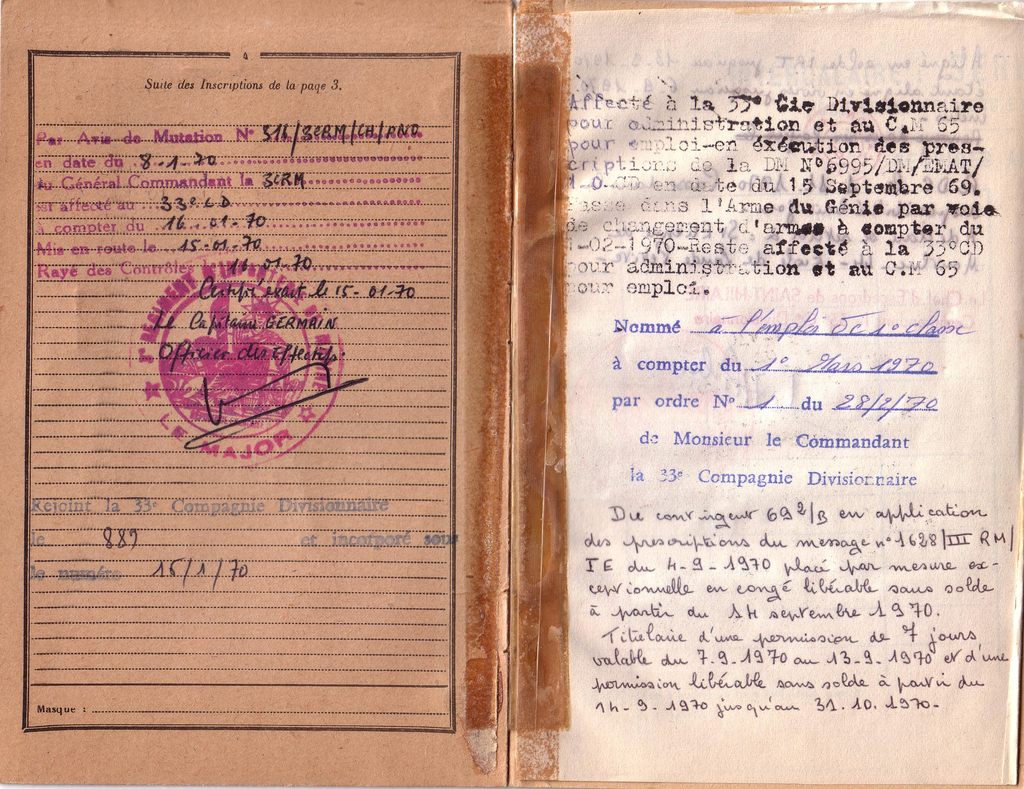 4
Suite des Inscriptions de la page 3.
Par Avis de Mutation N° 316/3CRM/CH/AND
en date du 8-1-70
du Général Commandant la 3CRM
est affecté au 33° CD
à compter du 16-01-70
Mis en route le 15-01-70
Rayé des Contrôles 16-01-70
Certifié exact le 15-01-70
Le Capitaine GERMAIN
Officier des Effectifs.
3e REGIMENT
LE MAJOR
Rejoint la 33e Compagnie Divisionnaire
le 889 et incorporé sous
le numéro 15/1/70
Masque :
Affecté à la 33° Cie Divisionnaire
pour administration et au C.M 65
pour emploi-en éxécution des pres-
criptions de la DM N°6995/DM/EMAT/
1-0.CD en date du 15 Septembre 69.
Passe dans l'Arme du Génie par voie
de changement d'armes à compter du
1-02-1970-Reste affecté à la 33°CD
pour administration et au C.M 65
pour emploi.
Nommé à l'emploi de 1° classe
à compter du 1° Mars 1970
par ordre N° 1 du 28/2/70
de Monsieur le Commandant
la 33e Compagnie Divisionnaire
Du contingent 69 2/B en application
des prescriptions du message n° 1628/III RM/
IE du 4-9-1970 placé par mesure ex-
ceptionnelle en congé libérable sans solde
à partir du 14 septembre 1970.
Titulaire d'une permission de 7 jours
valable du 7.9.1970 au 13-9-1970 et d'une
permission libérable sans solde à partir du
14-9-1970 jusqu'au 31.10.1970-